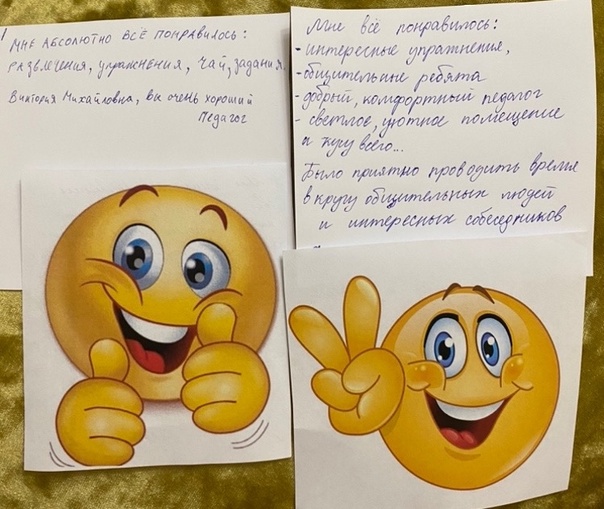 Мне абсолютно всё понравилось:
развлечения, упражнения, чай, задания.
Виктория Михайловна, вы очень хороший
Педагог
Мне всё понравилось:
- интересные упражнения,
- общительные ребята
- добрый, комфортный педагог
- светлое, уютное помещение
и кучу всего...
Было приятно проводить время
в кругу общительных людей
и интересных собеседников